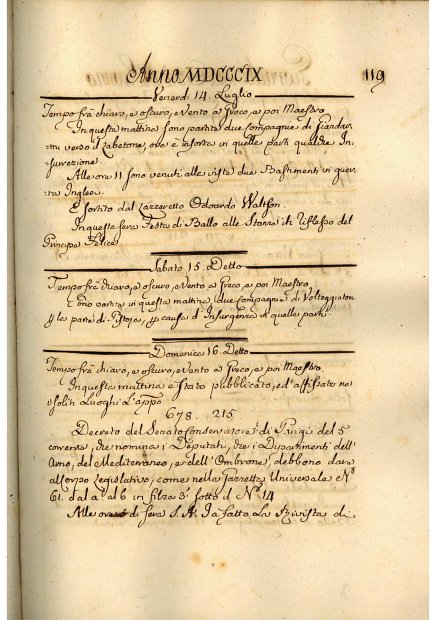 Anno MDCCCIX 119
Venerdi 14. Luglio
Tempo frà chiaro, e oscuro, e vento a Greco, e poi Maestro
In questa mattina sono partite due Compagnie di Giandar,
mi verso, ove è insorta in quelle parti qualche In,
surrezione.
Alle ore 11 sono venuti alle vista due Bastimenti in guer,
ra Inglesi.
È sortito dal Lazzeretto Odoardo
In questa sera Festa di Ballo alle Stanze del
Principe Felice
Sabato 15. Detto
Tempo frà chiaro, e oscuro, e vento a Greco, e poi Maestro
Sono partite in questa mattina due Compagnie di
p la parte di Pistoja, p causa d'Insurgenza in quelle parti.
Domenica 16. Detto
Tempo frà chiaro, e oscuro, e vento a Greco, e poi Maestro.
In questa mattina è stato pubblicato, ed affissato ne
soliti Luoghi L'appo
678. 215
Decreto del Senato Conservatore di Parigi del 5
corrente, che nomina i Deputati, che i Dipartimenti dell'
Arno, del Mediterraneo, e dell'Ombrone, debbono dare
al Corpo Legislativo, come nella Gazzetta Universale Nº
61. dal al 6 in filza 3ª sotto il Nº 14
Alle ore di sera S. A. Ia fatto La Rivista di